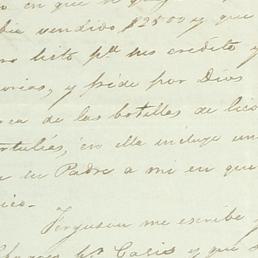 en que
vendido $2500 y que
hito pa. sus credito y
y pide por Dios
de las botellas de lico
en ella incluye un
su Padre a mi en que
ico.
Ferguson me escribe
pa. Casis y que